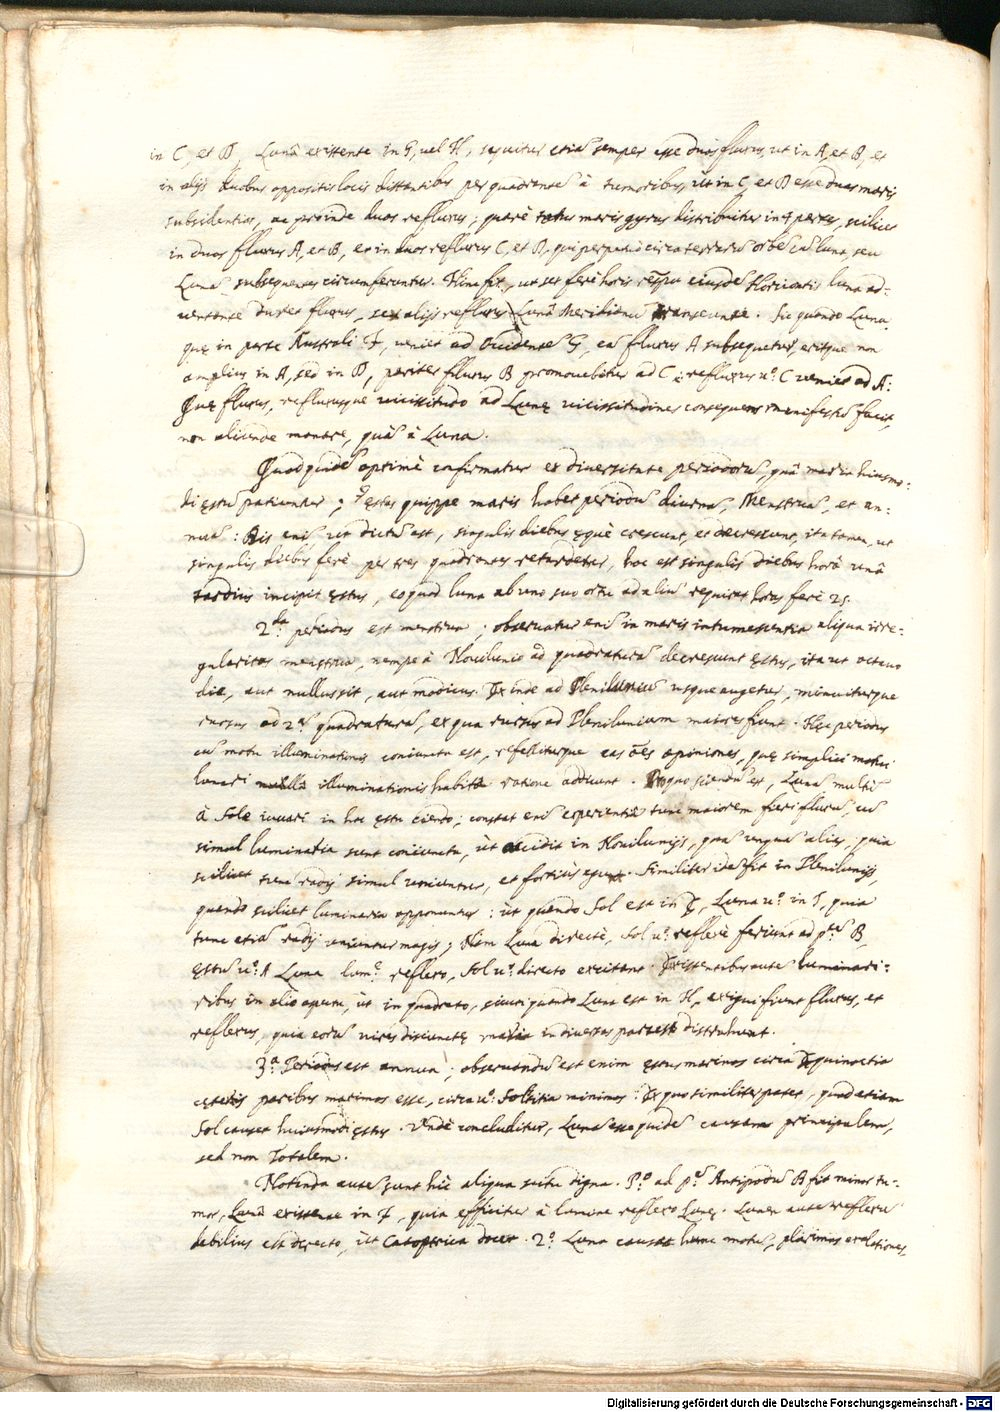 in C, et D, Lunâ existente in G, uel H, sequitur etiã semper esse duos fluxus, ut in A, et B, et
in alijs duobus oppositis locis distantibus per quadrantẽ à tumoribus, ut in C, et D esse duas maris
subsidentias, ac proinde duos refluxus; quarè totus maris gyrus distribuitur in 4 partes, scilicet
in duos fluxus A, et B, et in duos refluxus C, et D, qui perpetuò circa terrarũ orbẽ cũ luna, seu
Lunã subsequentes circumferuntur. Hinc fit, ut sex ferè horis respectu eiusdẽ Horizontis luna ad-
uentante duret fluxus, sex alijs refluxus Lunâ Meridianũ transeunte. Sic quando Luna,
quę in parte Australi F, ueniet ad Occidentẽ G, eã fluxus A subsequetur, eritque non
amplius in A, sed in D, pariter fluxus B promouebitur ad C; refluxus uº C ueniet ad A:
Quę fluxus, refluxusque uicissitudo ad Lunę uicissitudines consequens manifestũ facit,
non aliunde manare, quã à Luna.
Quod quidẽ optimè confirmatur ex diuersitate periodorũ, quã maria huiusmo-
di ęstu patiuntur; ęstus quippe maris habet periodũ diurnã, Menstruã, et an-
nuã: His enĩ ut dictũ est, singulis diebus ęquè crescunt, et decrescunt, ita tamen, ut
singulis diebus ferè per tres quadrantes retardetur, hoc est singulis diebus horâ unâ
tardius incipit ęstus, eo quod luna ab uno suo ortu ad aliũ requirat horas ferè 25.
2.da periodus est menstrua; obseruatur enĩ in maris intumescentia aliqua irre-
gularitas menstrua, nempe à Nouilunio ad quadraturã decrescunt ęstus, ita ut octauo
die, aut nullus sit, aut modicus. Exinde ad Pleniluniũ usque augetur, minuiturque
rursus ad 2ã quadraturã, ex qua rursus ad Plenilunium maiores fiunt. Hęc periodus
cũ motu illuminationis coniuncta est, refelliturque eas oẽs opiniones, quę simplici motui
lunari nulla illuminationis habita ratione adducunt. Pro quo sciendũ est, Lunã multũ
à Sole iuuari in hoc ęstu ciendo; constat enĩ experientia tunc maiorem fieri fluxũ, cũ
simul luminaria sunt coniuncta, ut accidit in Nouilunijs, quã unquã aliàs, quia
scilicet tunc radij simul uniuntur, et fortiùs agunt. Similiter idẽ fit in Plenilunijs,
quando scilicet luminaria opponuntur: ut quando Sol est in F, Luna uº in I, quia
tunc etiã radij uniuntur magis; Nam Luna directè, Sol uº reflexè feriunt ad ptẽ B,
ęstũ uº A Luna lumº reflexo, Sol uº directo excitant. Existentibus autẽ luminari-
ribus in alio aspectu, ut in quadrato, sicuti quando Luna est in H, exigui fiunt fluxus, et
reflexus, quia eorũ uires disiunctę maria in diuersas partes distrahunt.
3.a Periodus est annua; obseruandũ est enim ęstus marinos circa Ęquinoctia
cęteris paribus maximos esse, circa uº Solstitia minimos: Ex quo similiter patet, quod etiam
Sol causet huiusmodi ęstus. Vnde concluditur, Lunã esse quidẽ causam principalem,
sed non totalem.
Notanda autẽ sunt hîc aliqua scitu digna. Pº ad pẽ Antipodũ B fit minor tu-
mor, Lunâ existente in F, quia efficitur à lumine reflexo Lunę. Lumen autẽ reflexũ
debilius est directo, ut Catoptrica docet. 2º Luna causat hunc motũ, plurimas exalationes,
Digitalisierung gefördert durch die Deutsche Forschungsgemeinschaft - DFG